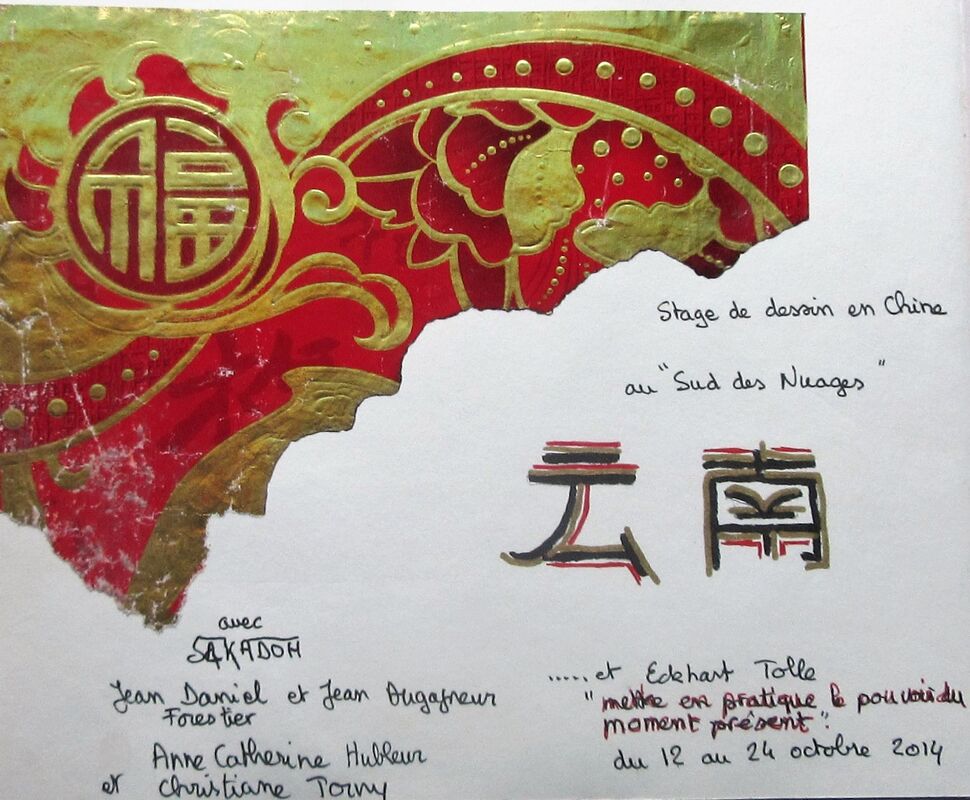 福
Stage de dessin en Chine
au "Sud des Nuages"
云南
avec
SAKADOH
Jean Daniel et Jean Augagneur
Forestier
Anne Catherine Hubleur
et Christiane Torny
..... et Eckhart Tolle
"mettre en pratique le pouvoir du
moment présent".
du 12 au 24 octobre 2014